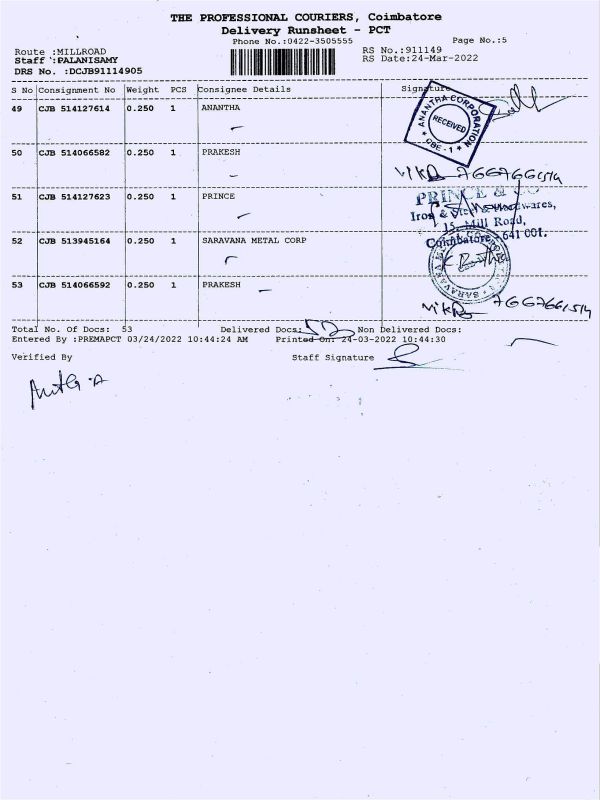 THE PROFESSIONAL COURIERS, Coimbatore
Delivery Runsheet - PCT
Phone No.:0422-3505555 Page No.:5
Route :MILLROAD RS No.:911149
Staff :PALANISAMY RS Date:24-Mar-2022
DRS No. :DCJB91114905
S No Consignment No Weight PCS Consignee Details Signature
49 CJB 514127614 0.250 1 ANANTHA
ANANTHA CORPORATION
RECEIVED
CBE - 1
50 CJB 514066582 0.250 1 PRAKESH
51 CJB 514127623 0.250 1 PRINCE
PRINCE & CO
Iron & Steel & Hardwares,
15, Mill Road,
Coimbatore - 641 001.
52 CJB 513945164 0.250 1 SARAVANA METAL CORP
53 CJB 514066592 0.250 1 PRAKESH
Total No. Of Docs: 53 Delivered Docs: 53 Non Delivered Docs:
Entered By :PREMAPCT 03/24/2022 10:44:24 AM Printed On: 24-03-2022 10:44:30
Verified By Staff Signature